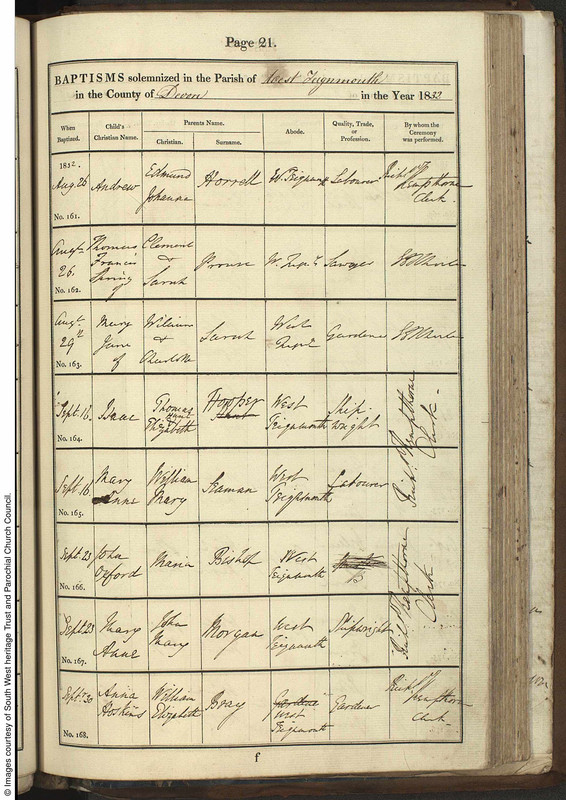 Page 21.
BAPTISMS solemnized in the Parish of West Teignmouth
in the County of Devon in the Year 1832
When Baptized.
Child's Christian Name.
Parents Name.
Christian.
Surname.
Abode.
Quality, Trade, or Profession.
By whom the Ceremony was performed.
1832.
Augt. 26
No. 161.
Andrew
Edmund
Johanna
Horrell
W. Teignmth
Labourer
Clerk.
Augt
26.
No. 162.
Thomas
Francis
of
Clement
&
Sarah
Prouse
Sawyer
Augt
29th
No. 163.
Mary
Jane
of
William
&
Charlotte
Sarah
West
Gardener
Sept. 16.
No. 164.
Isaac
Thomas
Elizabeth
Hooper
West
Teignmouth
Ship-
wright
Richd. Kempthorne
Clerk.
Sept. 16
No. 165.
Mary
Anne
William
Mary
Seaman
West
Teignmouth
Labourer
Sept. 23
No. 166.
John
Oxford
Maria
Bishop
West
Teignmouth
Richd. Kempthorne
Clerk.
Sept 23
No. 167.
Mary
Anne
John
Mary
Morgan
West
Teignmouth
Shipwright
Sept. 30
No. 168.
Anna
Hoskins
William
Elizabeth
Bray
Gardener
West
Teignmouth
Gardener
Richd.
Kempthorne
Clerk.
f
© Images courtesy of South West heritage Trust and Parochial Church Council.